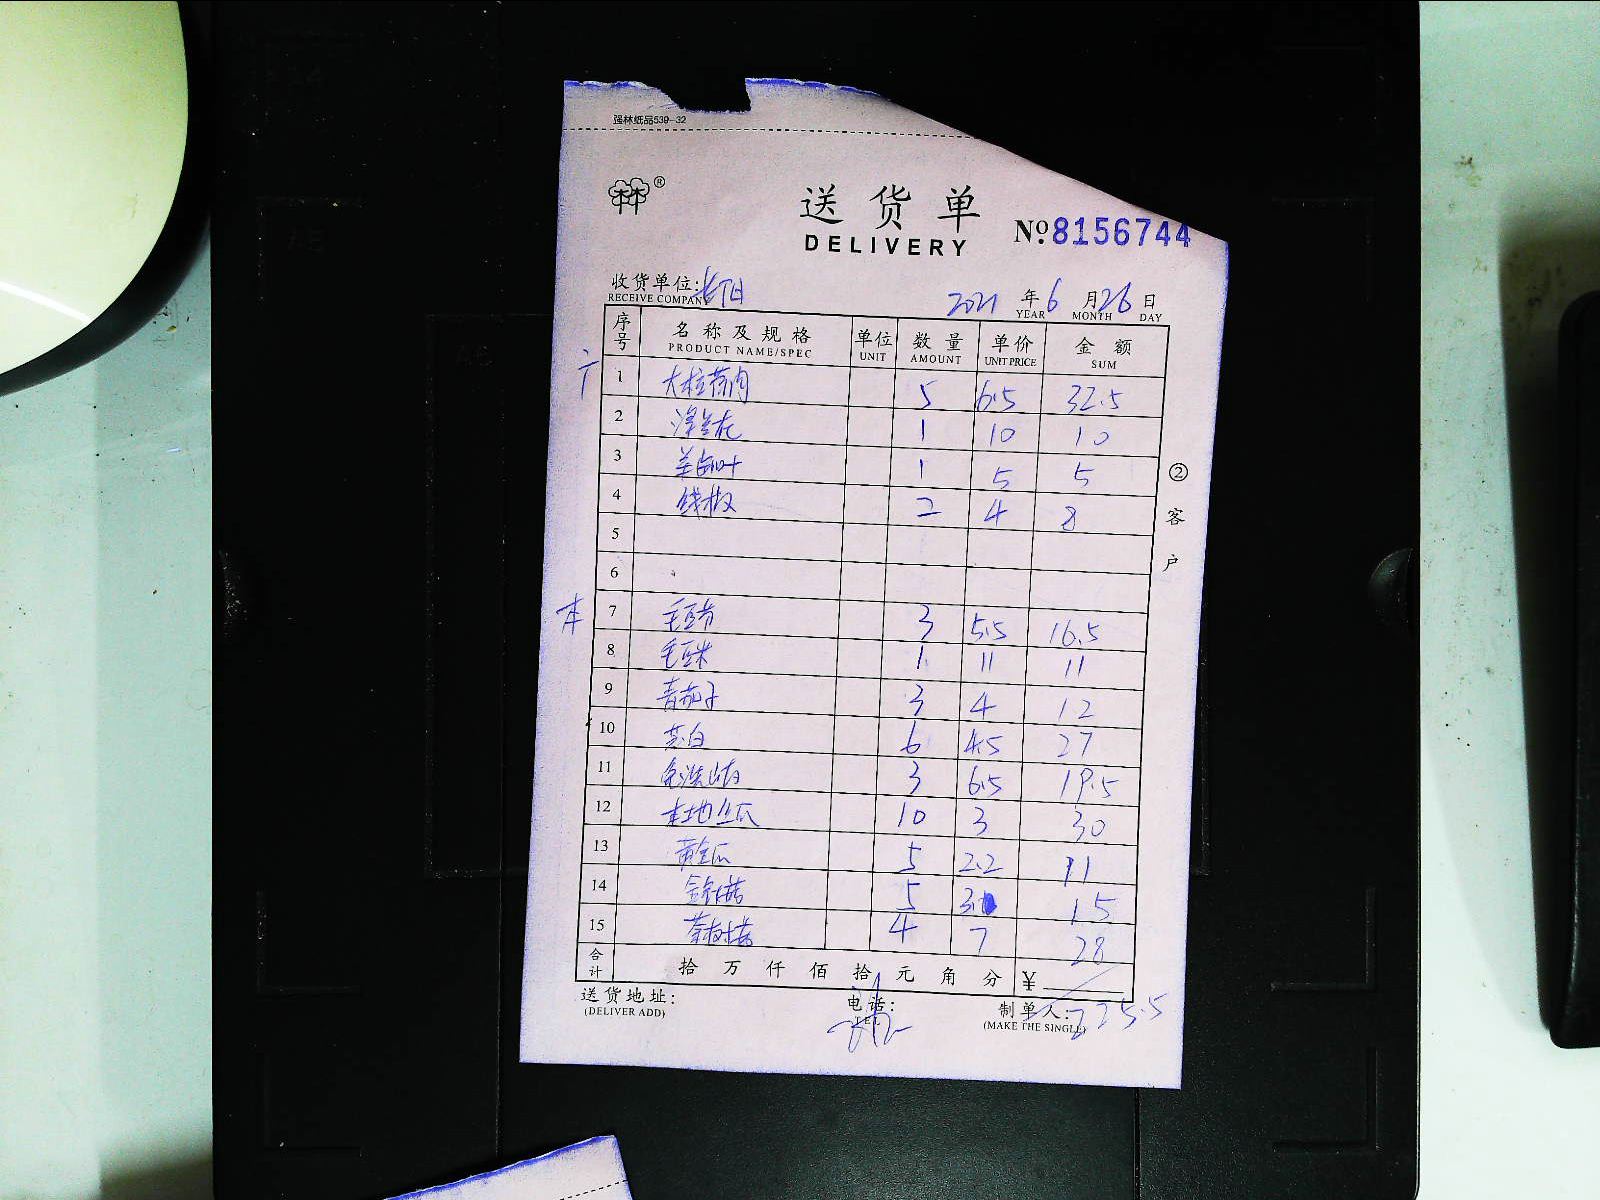 强林纸品539-32
送货单
DELIVERY
№8156744
收货单位:
RECEIVE COMPANY
2021 年 6 月 26 日
YEAR MONTH DAY
序号 名称及规格 单位 数量 单价 金额
PRODUCT NAME/SPEC UNIT AMOUNT UNIT PRICE SUM
1 5 6.5 32.5
2 1 10 10
3 1 5 5
4 钱椒 2 4 8
5
6
本 7 毛豆节 3 5.5 16.5
8 毛豆米 1 11 11
9 青茄子 3 4 12
10 茭白 6 4.5 27
11 3 6.5 19.5
12 本地丝瓜 10 3 30
13 黄金瓜 5 2.2 11
14 金针菇 5 3 15
15 茶树菇 4 7 28
合计 拾 万 仟 佰 拾 元 角 分 ¥
225.5
送货地址: 电话: 制单人:
(DELIVER ADD) TEL (MAKE THE SINGLE)
②客户